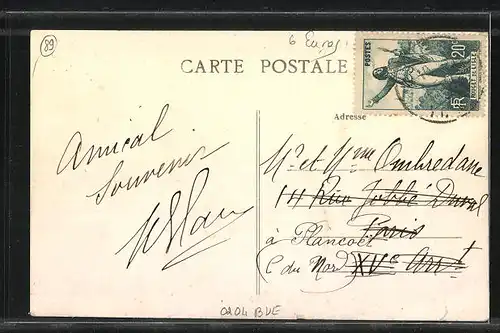 89
6 Euros
CARTE POSTALE
POSTES
20c
RF
ROUGET DE L'ISLE
Adresse
Amical
Souvenir
Mr et Mme Ombredane
14 Rue Jobbé Duval
Paris
à Plancoët
(C. du Nord) XVe Arrt
0204 BUE